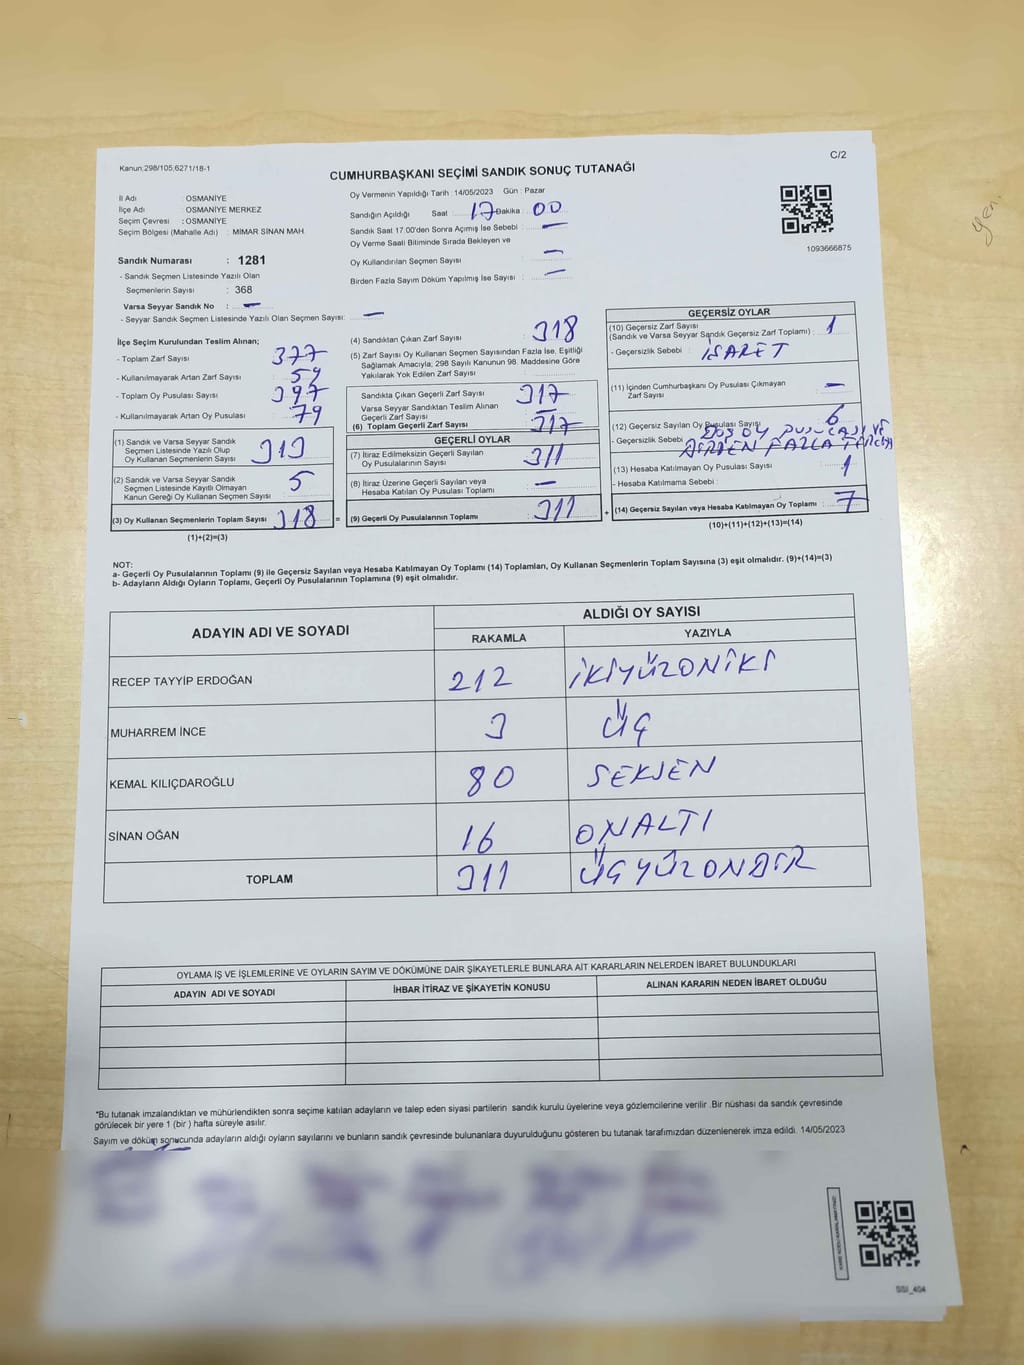 Kanun:298/105,6271/18-1
C/2
CUMHURBAŞKANI SEÇİMİ SANDIK SONUÇ TUTANAĞI
İl Adı : OSMANİYE
İlçe Adı : OSMANİYE MERKEZ
Seçim Çevresi : OSMANİYE
Seçim Bölgesi (Mahalle Adı) : MİMAR SİNAN MAH.
Sandık Numarası : 1281
- Sandık Seçmen Listesinde Yazılı Olan
Seçmenlerin Sayısı : 368
Varsa Seyyar Sandık No : –
- Seyyar Sandık Seçmen Listesinde Yazılı Olan Seçmen Sayısı: –
Oy Vermenin Yapıldığı Tarih : 14/05/2023 Gün : Pazar
Sandığın Açıldığı Saat 17 Dakika : 00
Sandık Saat 17.00'den Sonra Açımış İse Sebebi : –
Oy Verme Saati Bitiminde Sırada Bekleyen ve
Oy Kullandırılan Seçmen Sayısı : –
Birden Fazla Sayım Döküm Yapılmış İse Sayısı : –
1093666875
yen.
İlçe Seçim Kurulundan Teslim Alınan;
- Toplam Zarf Sayısı : 377
- Kullanılmayarak Artan Zarf Sayısı : 59
- Toplam Oy Pusulası Sayısı : 397
- Kullanılmayarak Artan Oy Pusulası : 79
(1) Sandık ve Varsa Seyyar Sandık
Seçmen Listesinde Yazılı Olup
Oy Kullanan Seçmenlerin Sayısı : 313
(2) Sandık ve Varsa Seyyar Sandık
Seçmen Listesinde Kayıtlı Olmayan
Kanun Gereği Oy Kullanan Seçmen Sayısı : 5
(3) Oy Kullanan Seçmenlerin Toplam Sayısı : 318
(1)+(2)=(3)
(4) Sandıktan Çıkan Zarf Sayısı : 318
(5) Zarf Sayısı Oy Kullanan Seçmen Sayısından Fazla İse, Eşitliği
Sağlamak Amacıyla; 298 Sayılı Kanunun 98. Maddesine Göre
Yakılarak Yok Edilen Zarf Sayısı :
Sandıkta Çıkan Geçerli Zarf Sayısı : 317
Varsa Seyyar Sandıktan Teslim Alınan
Geçerli Zarf Sayısı : –
(6) Toplam Geçerli Zarf Sayısı : 317
GEÇERLİ OYLAR
(7) İtiraz Edilmeksizin Geçerli Sayılan
Oy Pusulalarının Sayısı : 311
(8) İtiraz Üzerine Geçerli Sayılan veya
Hesaba Katılan Oy Pusulası Toplamı : –
= (9) Geçerli Oy Pusulalarının Toplamı : 311
GEÇERSİZ OYLAR
(10) Geçersiz Zarf Sayısı
(Sandık ve Varsa Seyyar Sandık Geçersiz Zarf Toplamı) : 1
- Geçersizlik Sebebi : İŞARET
(11) İçinden Cumhurbaşkanı Oy Pusulası Çıkmayan
Zarf Sayısı : –
(12) Geçersiz Sayılan Oy Pusulası Sayısı : 6
- Geçersizlik Sebebi : BOŞ OY PUSULASI VE
BİRDEN FAZLA TERCİH
(13) Hesaba Katılmayan Oy Pusulası Sayısı : 1
- Hesaba Katılmama Sebebi :
+ (14) Geçersiz Sayılan veya Hesaba Katılmayan Oy Toplamı : 7
(10)+(11)+(12)+(13)=(14)
NOT:
a- Geçerli Oy Pusulalarının Toplamı (9) ile Geçersiz Sayılan veya Hesaba Katılmayan Oy Toplamı (14) Toplamları, Oy Kullanan Seçmenlerin Toplam Sayısına (3) eşit olmalıdır. (9)+(14)=(3)
b- Adayların Aldığı Oyların Toplamı, Geçerli Oy Pusulalarının Toplamına (9) eşit olmalıdır.
ADAYIN ADI VE SOYADI ALDIĞI OY SAYISI
RAKAMLA YAZIYLA
RECEP TAYYİP ERDOĞAN 212 İKİYÜZONİKİ
MUHARREM İNCE 3 ÜÇ
KEMAL KILIÇDAROĞLU 80 SEKSEN
SİNAN OĞAN 16 ONALTI
TOPLAM 311 ÜÇYÜZONBİR
OYLAMA İŞ VE İŞLEMLERİNE VE OYLARIN SAYIM VE DÖKÜMÜNE DAİR ŞİKAYETLERLE BUNLARA AİT KARARLARIN NELERDEN İBARET BULUNDUKLARI
ADAYIN ADI VE SOYADI İHBAR İTİRAZ VE ŞİKAYETİN KONUSU ALINAN KARARIN NEDEN İBARET OLDUĞU
*Bu tutanak imzalandıktan ve mühürlendikten sonra seçime katılan adayların ve talep eden siyasi partilerin sandık kurulu üyelerine veya gözlemcilerine verilir .Bir nüshası da sandık çevresinde
görülecek bir yere 1 (bir ) hafta süreyle asılır.
Sayım ve döküm sonucunda adayların aldığı oyların sayılarını ve bunların sandık çevresinde bulunanlara duyurulduğunu gösteren bu tutanak tarafımızdan düzenlenerek imza edildi. 14/05/2023
SSI_404